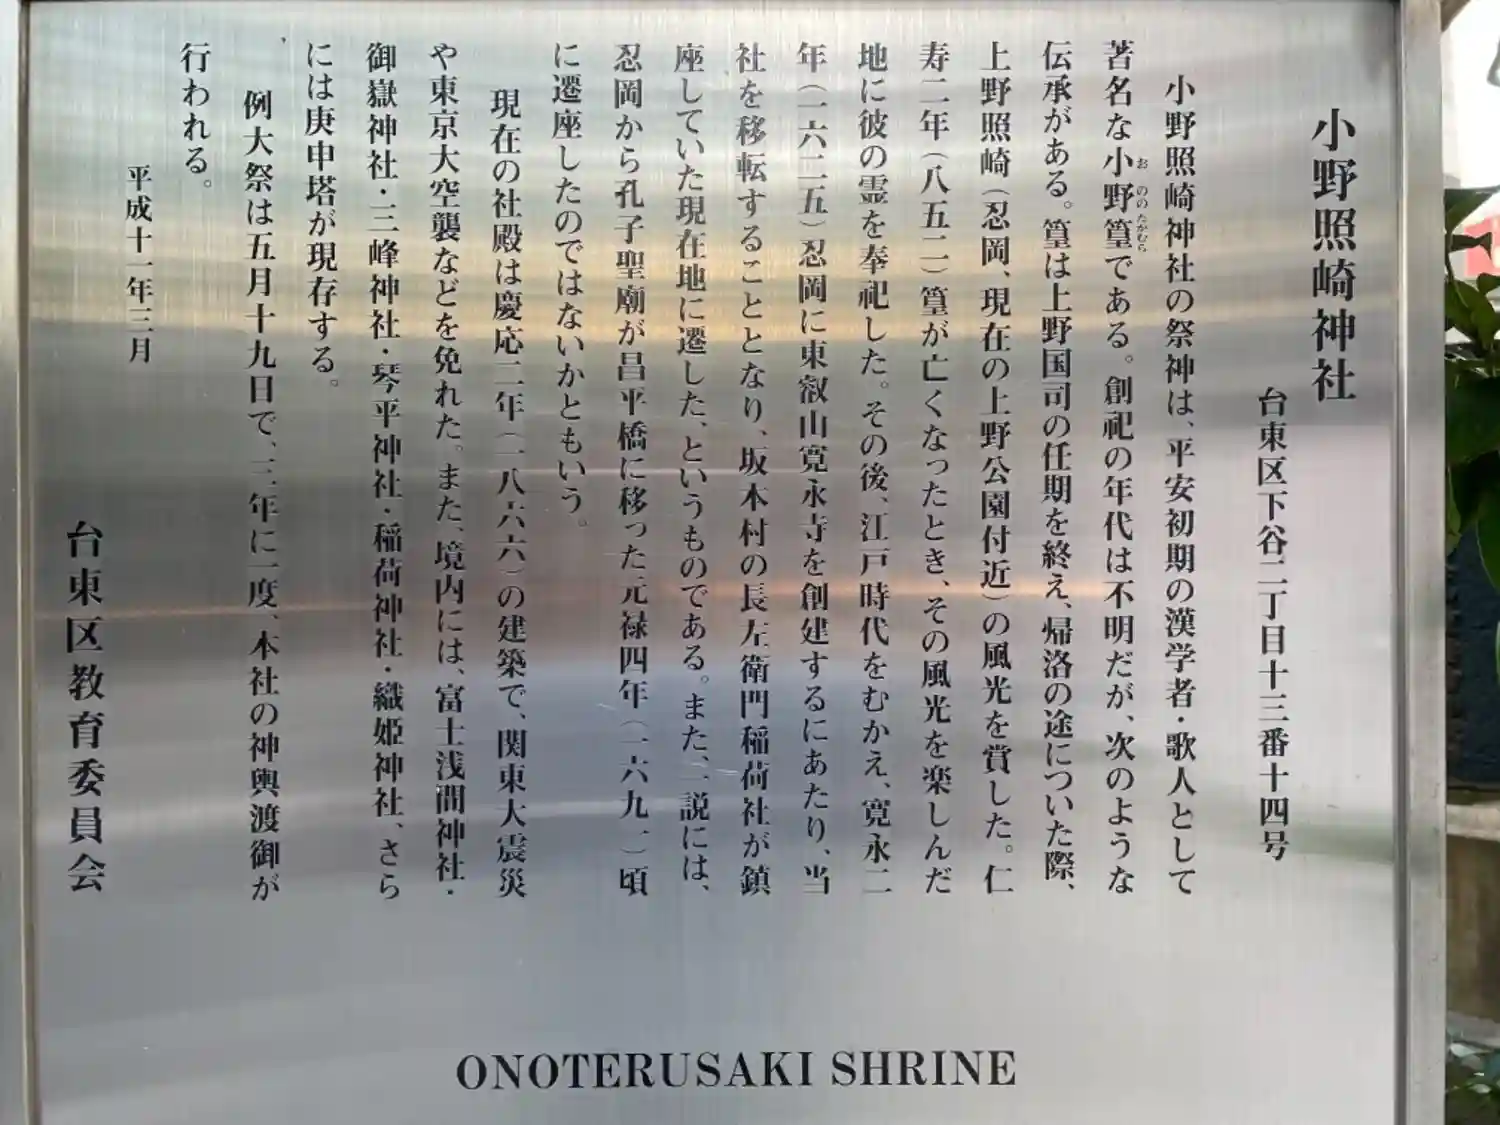 小野照崎神社
台東区下谷二丁目十三番十四号
小野照崎神社の祭神は、平安初期の漢学者・歌人として
著名な小野篁である。創祀の年代は不明だが、次のような
お ののたかむら
伝承がある。篁は上野国司の任期を終え、帰洛の途についた際、
上野照崎（忍岡、現在の上野公園付近）の風光を賞した。仁
寿二年（八五二）篁が亡くなったとき、その風光を楽しんだ
地に彼の霊を奉祀した。その後、江戸時代をむかえ、寛永二
年（一六二五）忍岡に東叡山寛永寺を創建するにあたり、当
社を移転することとなり、坂本村の長左衛門稲荷社が鎮
座していた現在地に遷した、というものである。また、一説には、
忍岡から孔子聖廟が昌平橋に移った元禄四年（一六九一）頃
に遷座したのではないかともいう。
現在の社殿は慶応二年（一八六六）の建築で、関東大震災
や東京大空襲などを免れた。また、境内には、富士浅間神社・
御嶽神社・三峰神社・琴平神社・稲荷神社・織姫神社、さら
には庚申塔が現存する。
例大祭は五月十九日で、三年に一度、本社の神輿渡御が
行われる。
平成十一年三月
台東区教育委員会
ONOTERUSAKI SHRINE